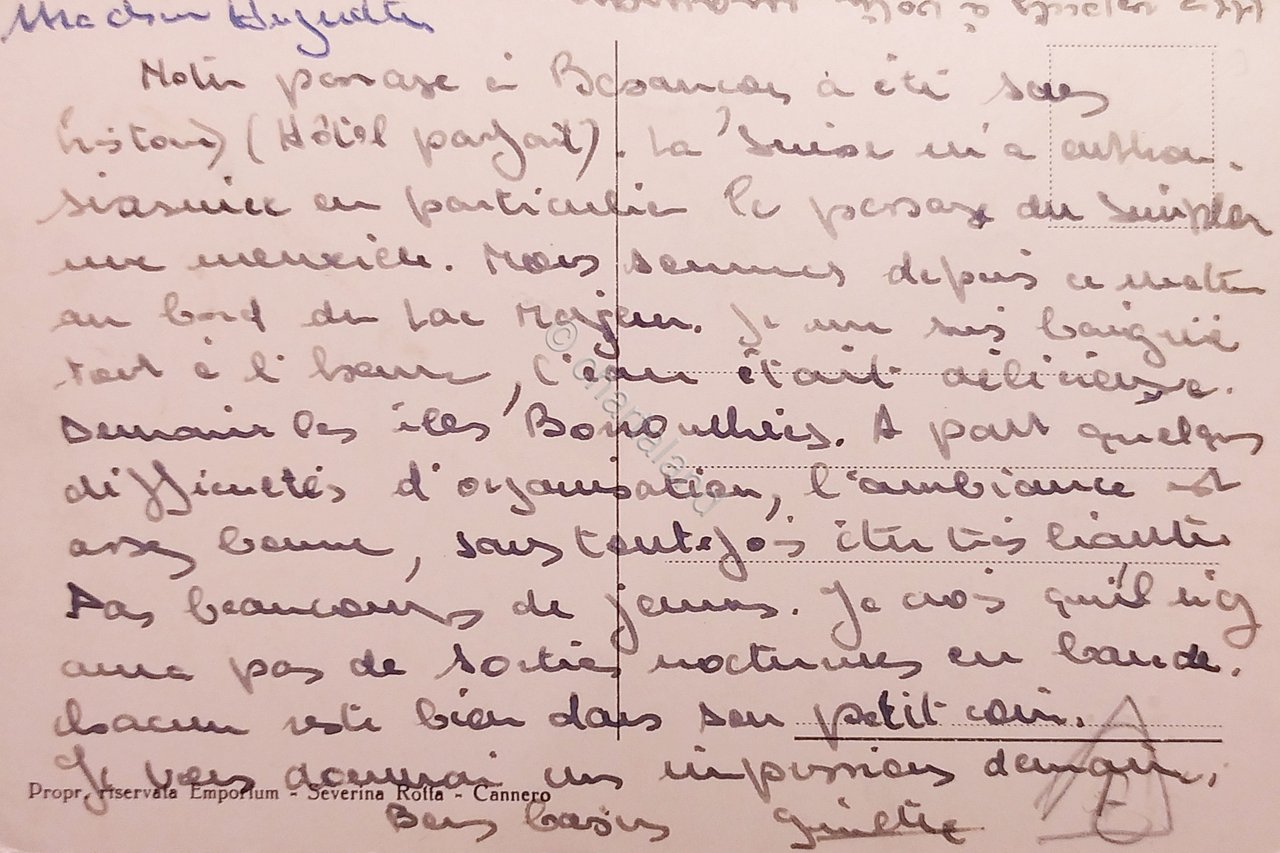 Notre passage à Besançon à été sans
histoires (Hôtel parfait). La Suisse m'a enthou-
siasmée en particulier le passage du Simplon
une merveille. Nous sommes depuis ce matin
au bord du Lac Majeur. Je me suis baignée
tout à l'heure, l'eau était délicieuse.
Demain les îles Borromées. A part quelques
difficultés d'organisation, l'ambiance est
assez bonne, sans toutefois être très liante.
Pas beaucoup de jeunes. Je crois qu'il n'y
aura pas de sorties nocturnes en bande,
chacun reste bien dans son petit coin.
Je vous donnerai mes impressions demain,
Propr. riservata Emporium - Severina Rotta - Cannero
Bons baisers Ginette
© chartaland